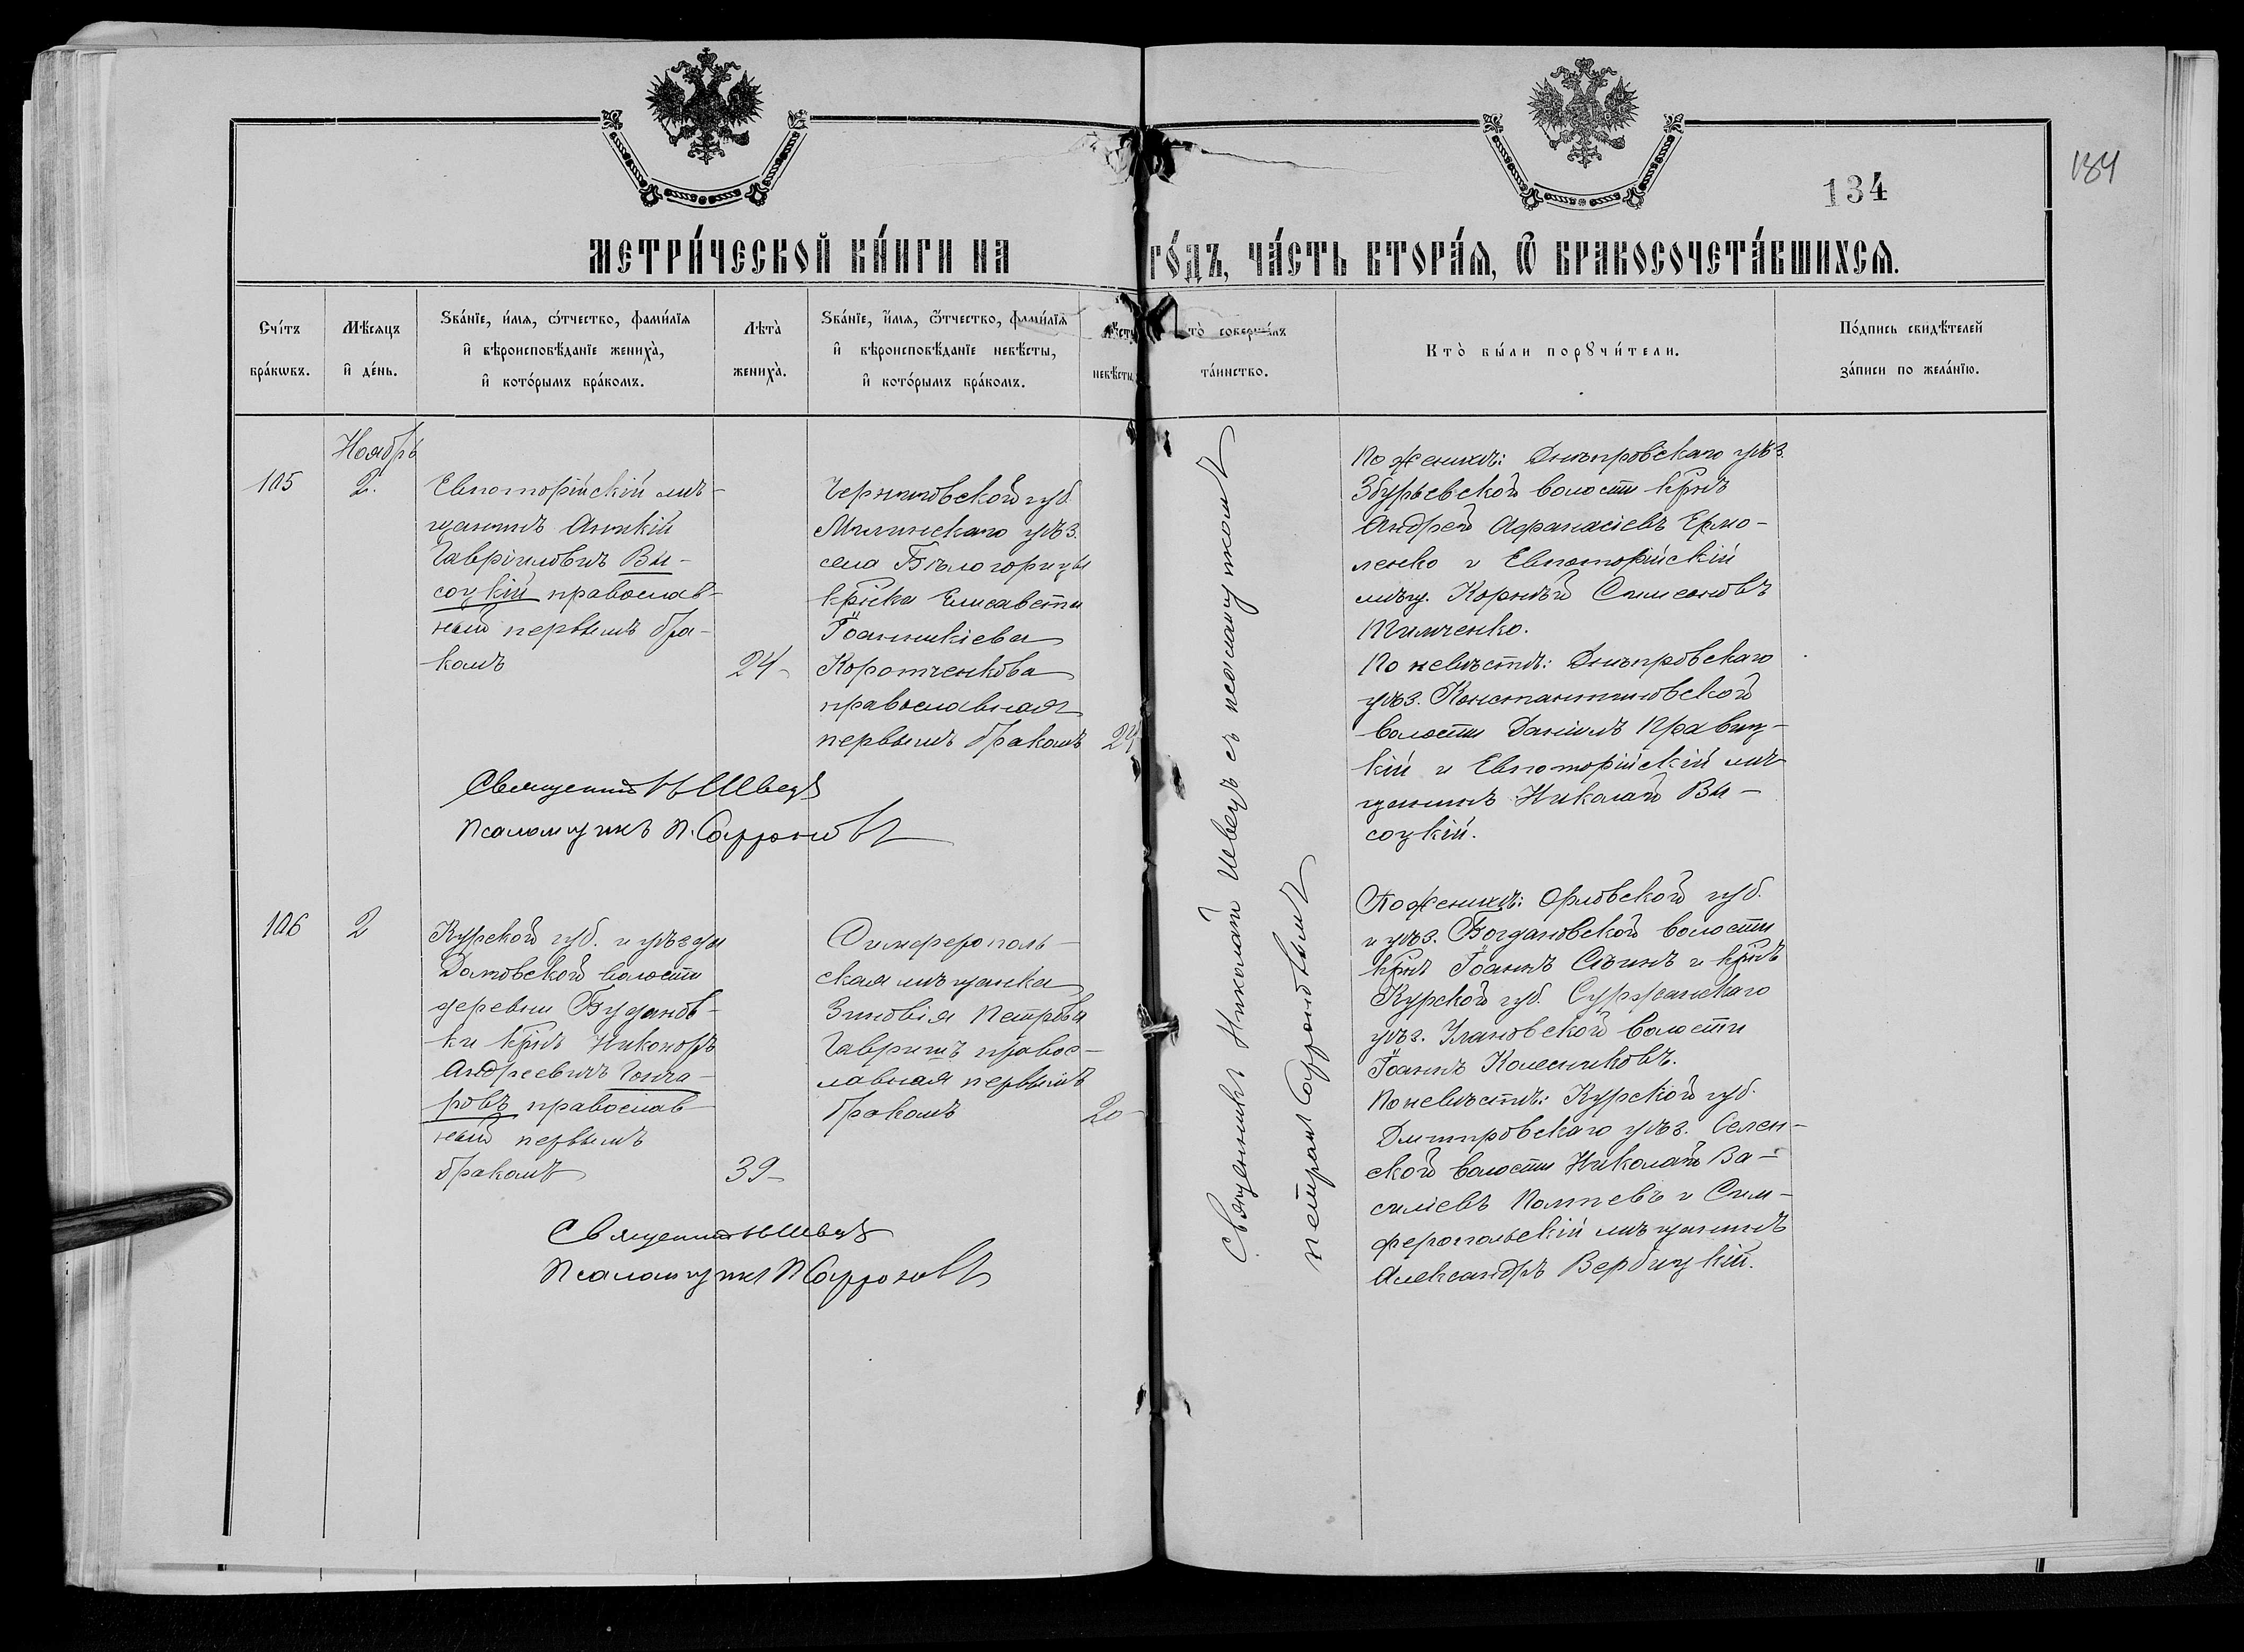 134
134
МЕТРИ́ЧЕСКОЙ КНИ́ГИ НА ГО́ДЪ, ЧА́СТЬ ВТОРА́Я, Ѿ БРАКОСОЧЕТА́ВШИХСЯ.
Сче́тъ
бра́кѡвъ.
Мѣ́сяцъ
и҆ де́нь.
Ѕва́нїе, и҆́мя, ѻ҆́тчество, фами́лїя
и҆ вѣроисповѣ́данїе жениха̀,
и҆ кото́рымъ бра́комъ.
Лѣта̀
жениха̀.
Ѕва́нїе, и҆́мя, ѻ҆́тчество, фами́лїя
и҆ вѣроисповѣ́данїе невѣ́сты,
и҆ кото́рымъ бра́комъ.
невѣ́сты
то̀ соверша́лъ
та́инство.
Кто̀ бы́ли порꙋчи́тели.
По́дпись свидѣ́телей
за́писи по жела́нїю.
Ноябрь
105
2.
Евпаторійскій мѣ-
щанинъ Аникій
Гавріиловичъ Вы-
соцкій православ-
ный первымъ бра-
комъ
24
Черниговской губ.
Мглинскаго уѣз.
села Бѣлогорицы
кр\u0027ска Елисавета
Іоанникіева
Коротченкова
православная
первымъ бракомъ
24
Священникъ Н Швецъ
Псаломщикъ П. Сафроновъ
Священникъ Николай Швецъ съ псаломщикомъ
Петромъ Сафроновымъ
По женихѣ: Днѣпровскаго уѣз.
Збурьевской волости крнъ
Андрей Афанасіевъ Ермо-
ленко и Евпаторійскій
мѣщ. Корнѣй Симеоновъ
Тимченко.
По невѣстѣ: Днѣпровскаго
уѣз. Константиновской
волости Даніилъ Правиц-
кій и Евпаторійскій мѣ-
щанинъ Николай Вы-
соцкій.
106
2
Курской губ. и уѣзда
волости
деревни Будановъ-
ки крнъ Никоноръ
Андреевичъ Гонча-
ровъ православ-
ный первымъ
бракомъ
39
Симферополь-
ская мѣщанка
Зиновія Петрова
Гавришъ правос-
лавная первымъ
бракомъ
20
Священникъ Н Швецъ
Псаломщикъ П Сафроновъ
По женихѣ: Орловской губ.
и уѣз. Богдановской волости
крнъ Іоаннъ и крнъ
Курской губ. Суржанскаго
уѣз. Улановской волости
Іоаннъ Колесниковъ.
По невѣстѣ: Курской губ.
Дмитровскаго уѣз. Селен-
ской волости Николай Ва-
силіевъ и Сим-
феропольскій мѣщанинъ
Александръ Вербицкій.